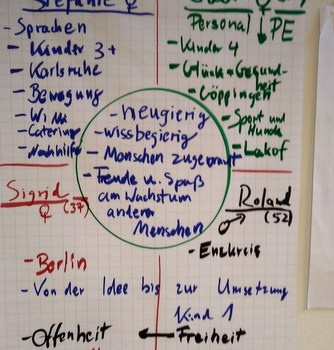 Stefanie ♀
- Sprachen
- Kinder 3+
- Karlsruhe
- Bewegung
- Catering
- Nachhilfe
Personal
PE
- Kinder 4
- Glück + Gesund-
heit
- Göppingen
- Sport und
Hunde
- Lakof
- neugierig
- wissbegierig
- Menschen zugewandt
- Freude u. Spaß
am Wachstum
anderer
Menschen
Sigrid (37)
♀
Roland
♂ (52)
- Enzkreis
- Berlin
- Von der Idee bis zur Umsetzung
Kind 1
- Offenheit ← Freiheit